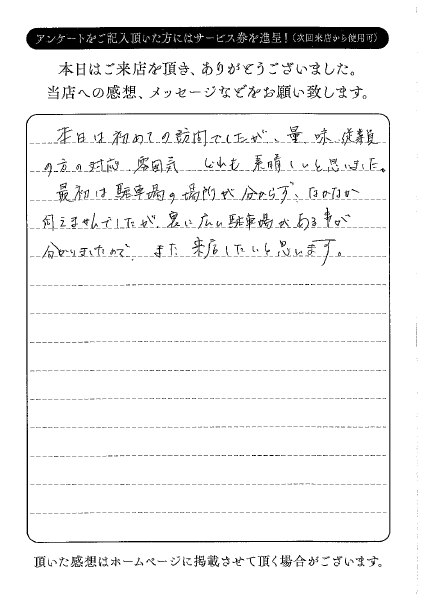 アンケートをご記入頂いた方にはサービス券を進呈！(次回来店から使用可)
本日はご来店を頂き、ありがとうございました。
当店への感想、メッセージなどをお願い致します。
本日は初めての訪問でしたが、量 味 従業員
の方の対応 雰囲気 どれも 素晴しいと思いました。
最初は駐車場の場所が分からず、なかなか
伺えませんでしたが、裏に広い駐車場がある事が
分かりましたので、また来店したいと思います。
頂いた感想はホームページに掲載させて頂く場合がございます。